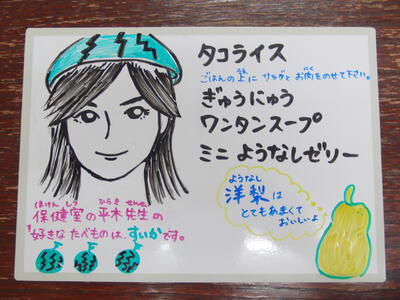 タコライス
ごはんの上に サラダと お肉をのせて下さい。
うえ
にく
ぎゅうにゅう
ワンタンスープ
ミニ ようなしゼリー
ようなし
洋梨は
とてもあまくて
おいしいよ
ほけん しつ ひらき せんせい
保健室の平木先生の
好きな たべものは、すいかです。
す